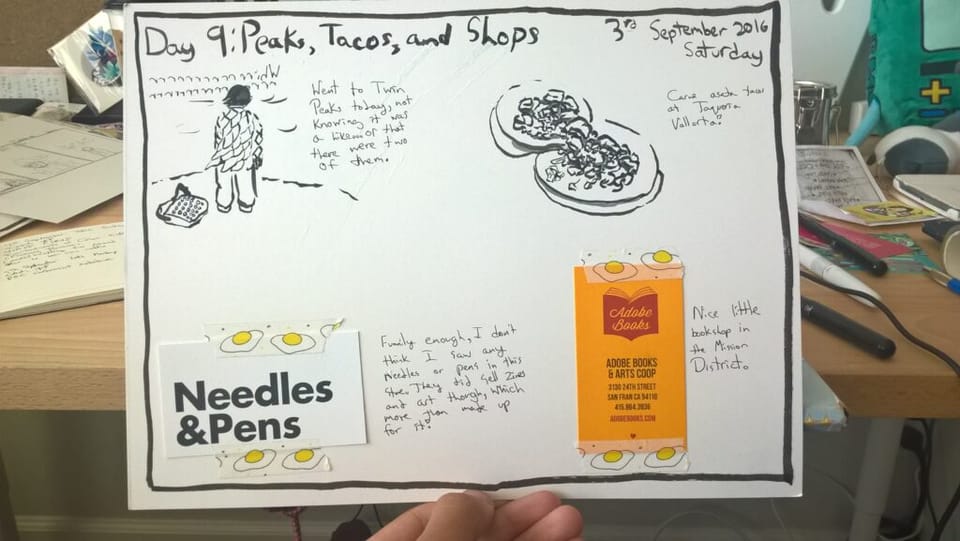 Day 9: Peaks, Tacos, and Shops
3rd September 2016
Saturday
Went to Twin
Peaks today, not
knowing it was
a hike... or that
there were two
of them.
Carne asada tacos
at Taqueria
Vallarta.
Needles
&Pens
Funily enough, I don't
think I saw any
needles or pens in this
store. They did sell zines
and art though, which
more than made up
for it!
Adobe
Books
ADOBE BOOKS
& ARTS COOP
3130 24TH STREET
SAN FRAN CA 94110
415.864.3936
ADOBEBOOKS.COM
Nice little
bookshop in
the Mission
District.